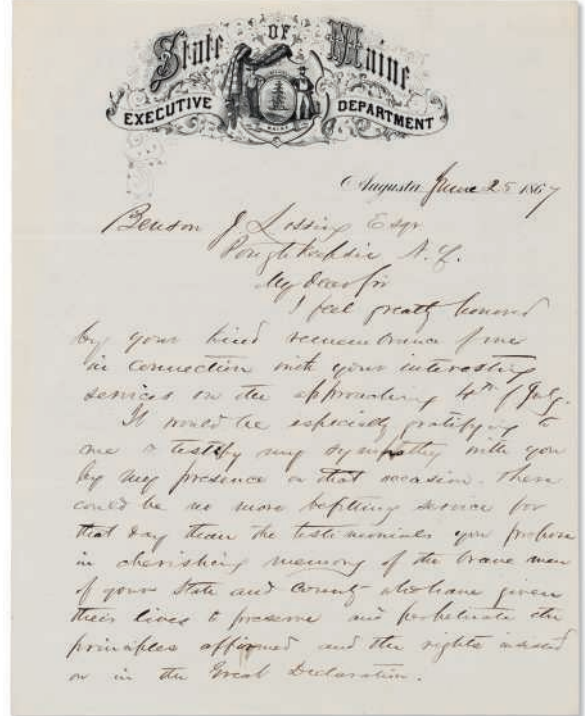 State OF Maine
EXECUTIVE DEPARTMENT
MAINE
Augusta June 25 1867
Benson J. Lossing Esqr
Poughkeepsie N. Y.
My Dear Sir
I feel greatly honored
by your kind remembrance of me
in connection with your interesting
services on the approaching 4th of July.
It would be especially gratifying to
me to testify my sympathy with you
by my presence on that occasion. There
could be no more befitting service for
that day than the testimonials you propose
in cherishing memory of the brave men
of your State and County who have given
their lives to preserve and perpetuate the
principles affirmed and the rights insisted
on in the Great Declaration.